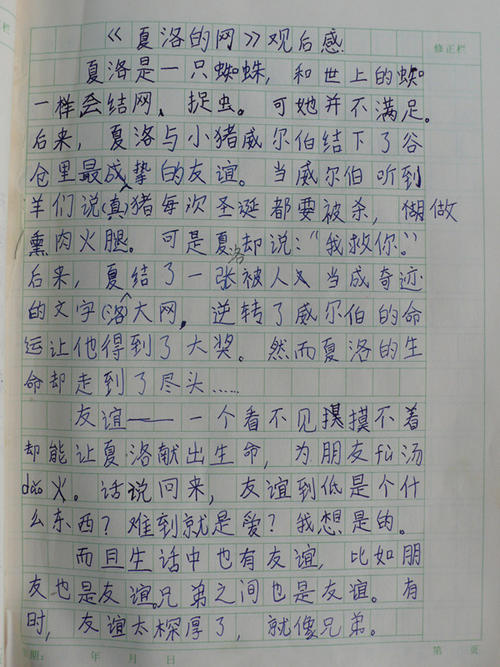 《夏洛的网》观后感
修正栏
夏洛是一只蜘蛛，和世上的蜘
一样会结网、捉虫。可她并不满足。
后来，夏洛与小猪威尔伯结下了谷
仓里最成挚的友谊。当威尔伯听到
羊们说(真)猪每次圣诞都要被杀，做
熏肉火腿。可是夏洛却说：“我救你。”
后来，夏结了一张被人当成奇迹
的文字(洛)大网，逆转了威尔伯的命
运让他得到了大奖。然而夏洛的生
命却走到了尽头……
友谊——一个看不见摸不着
却能让夏洛献出生命，为朋友fù汤
dǎo火。话说回来，友谊到低是个什
么东西？难到就是爱？我想是的。
而且生话中也有友谊，比如朋
友也是友谊。兄弟之间也是友谊。有
时，友谊太深厚了，就像兄弟。
期： 年 月 日 第 页